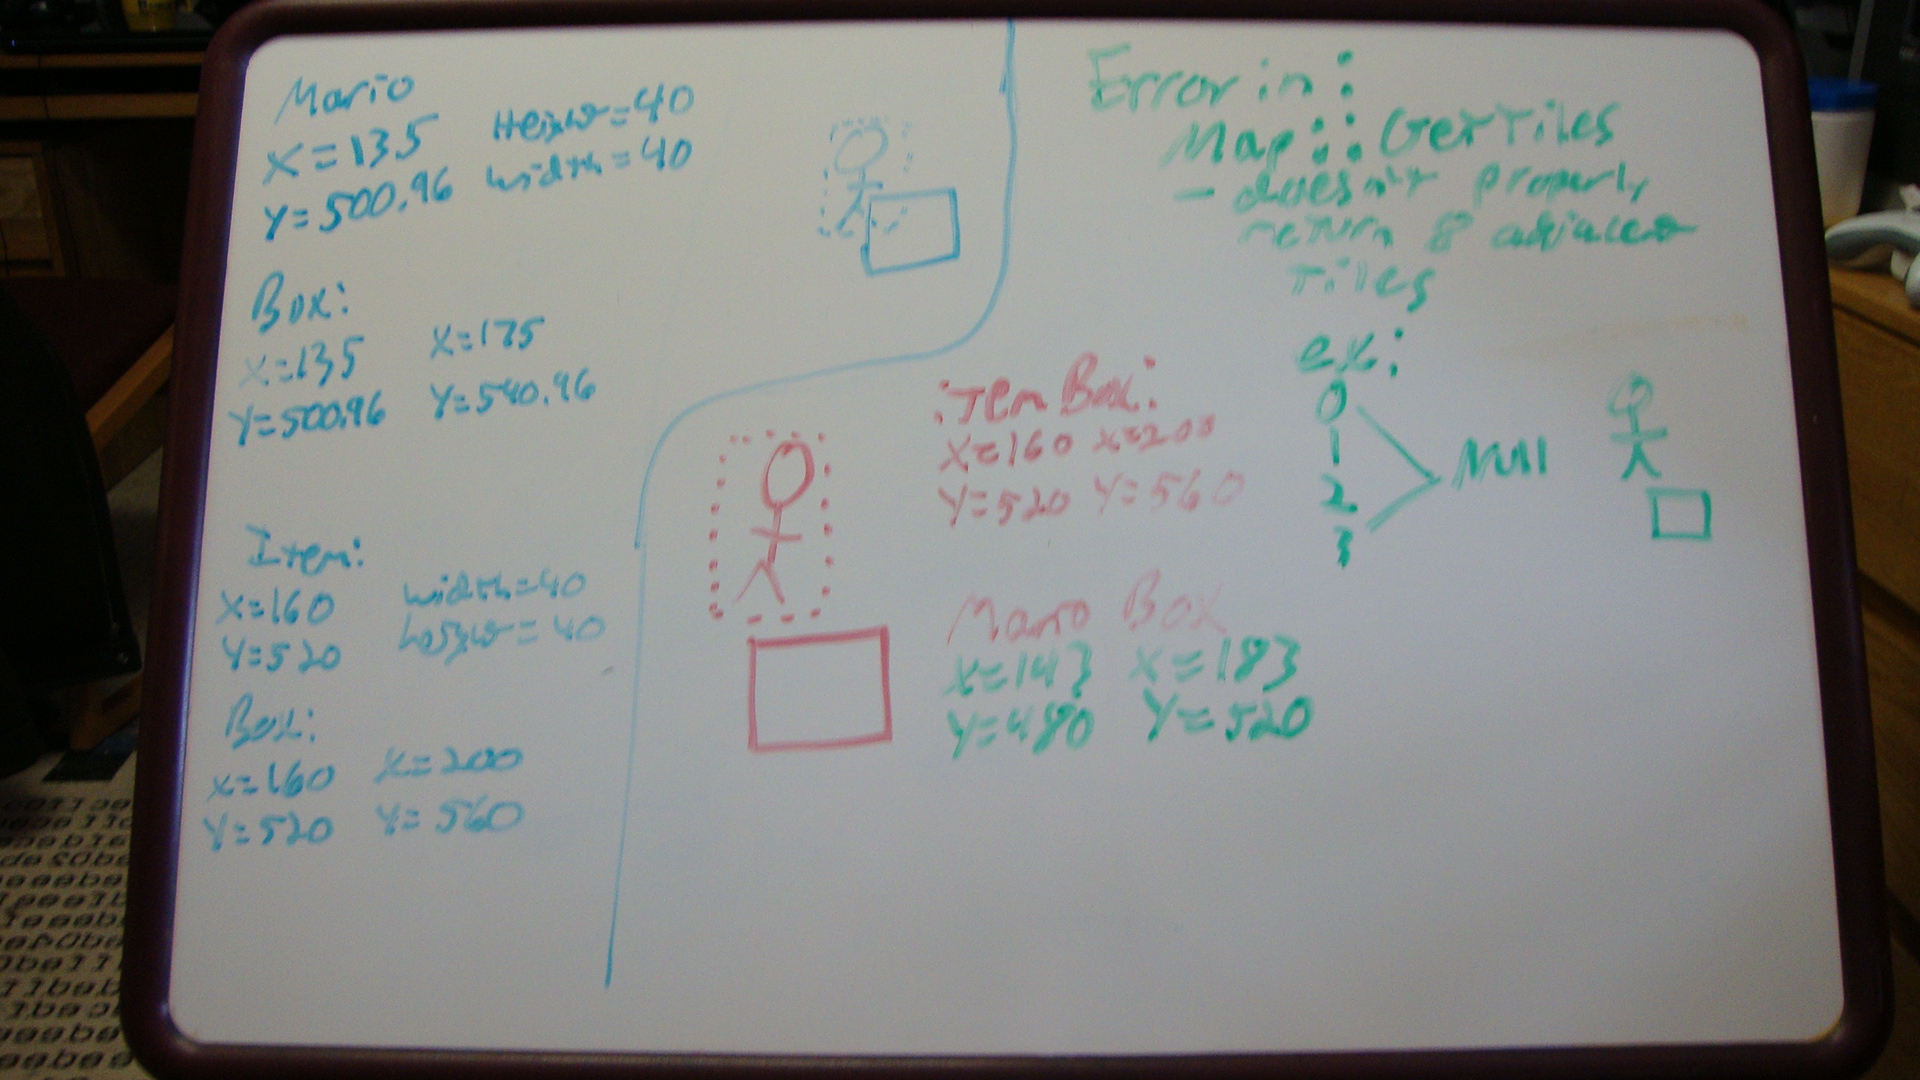 Mario
X=135 Height=40
Y=500.96 width=40
Box:
X=135 X=175
Y=500.96 Y=540.96
Item:
X=160 width=40
Y=520 height=40
Box:
X=160 X=200
Y=520 Y=560
Item Box:
X=160 X=200
Y=520 Y=560
Mario Box
X=143 X=183
Y=480 Y=520
Error in:
Map::GetTiles
- doesn't properly
return 8 adjacent
Tiles
ex:
0
1
2
3
Null